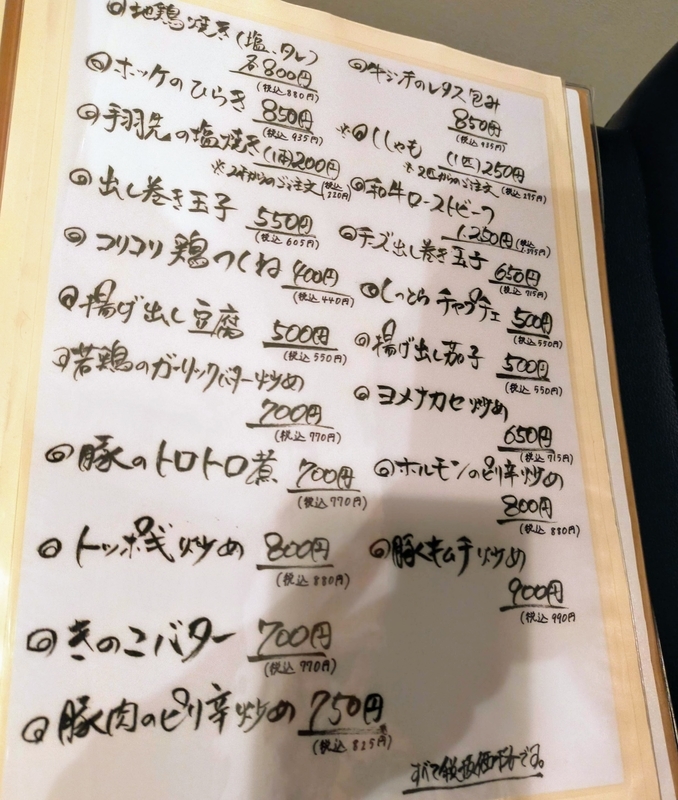 ◎地鶏焼き(塩、タレ)
各800円
(税込880円)
◎ホッケのひらき
850円
(税込935円)
◎手羽先の塩焼き
(1本)200円
※2本からのご注文(税込220円)
◎出し巻き玉子
550円
(税込605円)
◎コリコリ鶏つくね
400円
(税込440円)
◎揚げ出し豆腐
500円
(税込550円)
◎若鶏のガーリックバター炒め
700円
(税込770円)
◎豚のトロトロ煮
700円
(税込770円)
◎トッポギ炒め
800円
(税込880円)
◎きのこバター
700円
(税込770円)
◎豚肉のピリ辛炒め
750円
(税込825円)
◎牛シオのレタス包み
850円
(税込935円)
※◎ししゃも
(1匹)250円
※2匹からのご注文(税込275円)
◎和牛ローストビーフ
1,250円(税込1,375円)
◎チーズ出し巻き玉子
650円
(税込715円)
◎しっとらチャプチェ
500円
(税込550円)
◎揚げ出し茄子
500円
(税込550円)
◎ヨメナカセ炒め
650円
(税込715円)
◎ホルモンのピリ辛炒め
800円
(税込880円)
◎豚キムチ炒め
900円
(税込990円)
すべて税抜価格です。